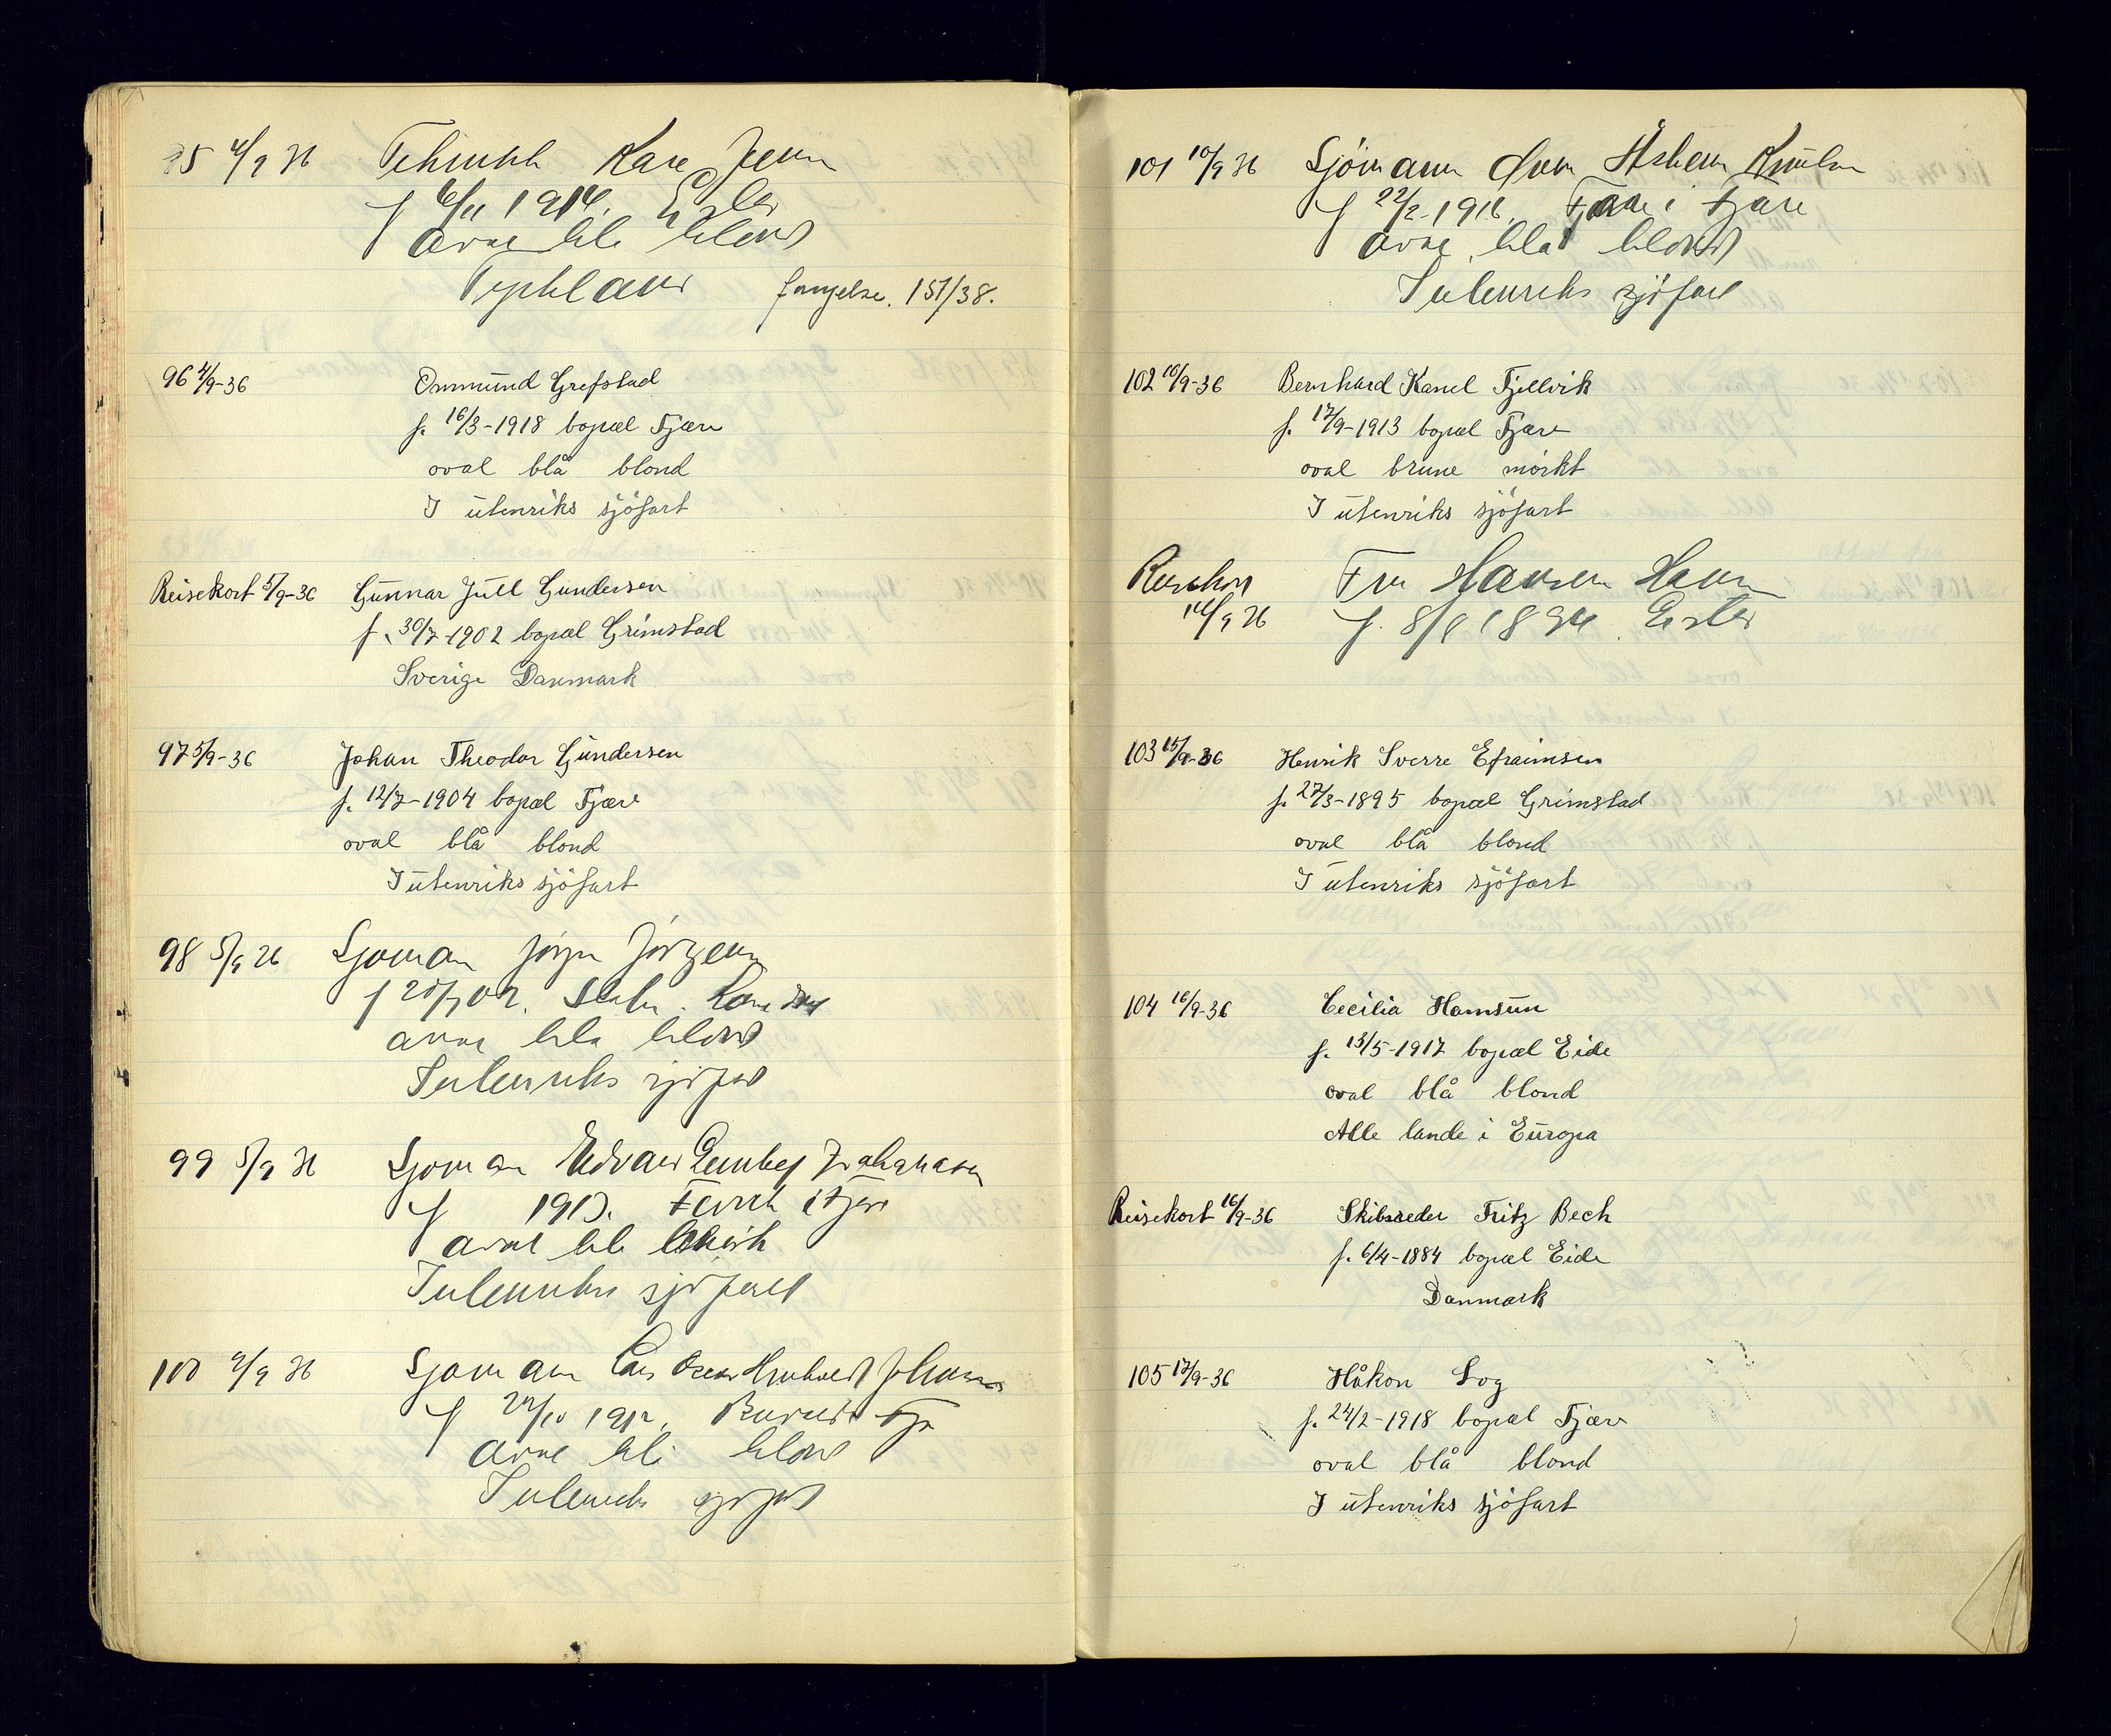 95 4/9 36
Kåre
f 6/11 1914.
oval blå blond
Tyskland fængelse. 151/38.
96 4/9-36 Ommund Grefstad
f. 16/3-1918 bopæl Fjære
oval blå blond
I utenriks sjöfart
Reisekort 5/9-36 Gunnar Juell Gundersen
f. 30/7-1902 bopæl Grimstad
Sverige Danmark
97 5/9-36 Johan Theodor Gundersen
f. 12/7-1904 bopæl Fjære
oval blå blond
I utenriks sjöfart
98 5/9 36 Sjömann Jörgen Jörgensen
f
oval blå blond
I utenriks sjöfart
99 5/9 36 Sjömann Edvard
f i Fjære
oval blå
I utenriks sjöfart
100 9/9 36 Sjömann Johansen
f
oval blå blond
I utenriks sjöfart
101 10/9 36 Sjömann Knutsen
f 22/2-1916, i Fjære
oval blå blond
I utenriks sjöfart
102 10/9-36 Bernhard Kanel Fjellvik
f. 17/9-1913 bopæl Fjære
oval brune mörkt
I utenriks sjöfart
Reisekort Fru Hansen
36 f. 8/8 1894
103 15/9-36 Henrik Sverre Efraimsen
f. 27/3-1895 bopæl Grimstad
oval blå blond
I utenriks sjöfart
104 16/9-36 Cecilia Hamsun
f. 13/5-1917 bopæl Eide
oval blå blond
Alle lande i Europa
Reisekort 16/9-36 Skibsreder Fritz Bech
f. 6/4-1884 bopæl Eide
Danmark
105 17/9-36 Håkon Log
f. 24/2-1918 bopæl Fjære
oval blå blond
I utenriks sjöfart